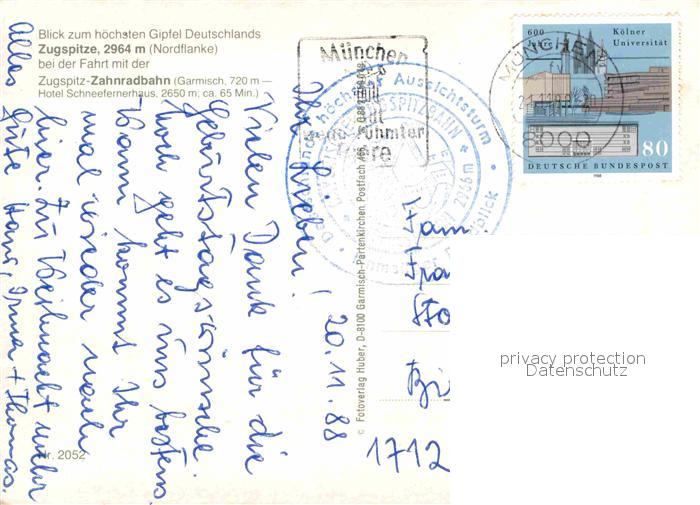 Blick zum höchsten Gipfel Deutschlands
Zugspitze, 2964 m (Nordflanke)
bei der Fahrt mit der
Zugspitz-Zahnradbahn (Garmisch, 720 m —
Hotel Schneefernerhaus, 2650 m; ca. 65 Min.)
20.11.88
Ihr Lieben!
Vielen Dank für die
Geburtstagswünsche.
Noch geht es uns bestens
Wann kommt Ihr
mal wieder nach
hier. Zu Weihnacht mehr
Alles Gute Hans, Irma + Thomas.
Nr. 2052
© Fotoverlag Huber, D-8100 Garmisch-Partenkirchen, Postfach
München
Deutschlands höchster Aussichtsturm
ZUGSPITZBAHN
2966 m
MÜNCHEN
8000
600 Jahre Kölner
Universität
DEUTSCHE BUNDESPOST 80
1988
Fam
Fra
Bi
1712
privacy protection
Datenschutz